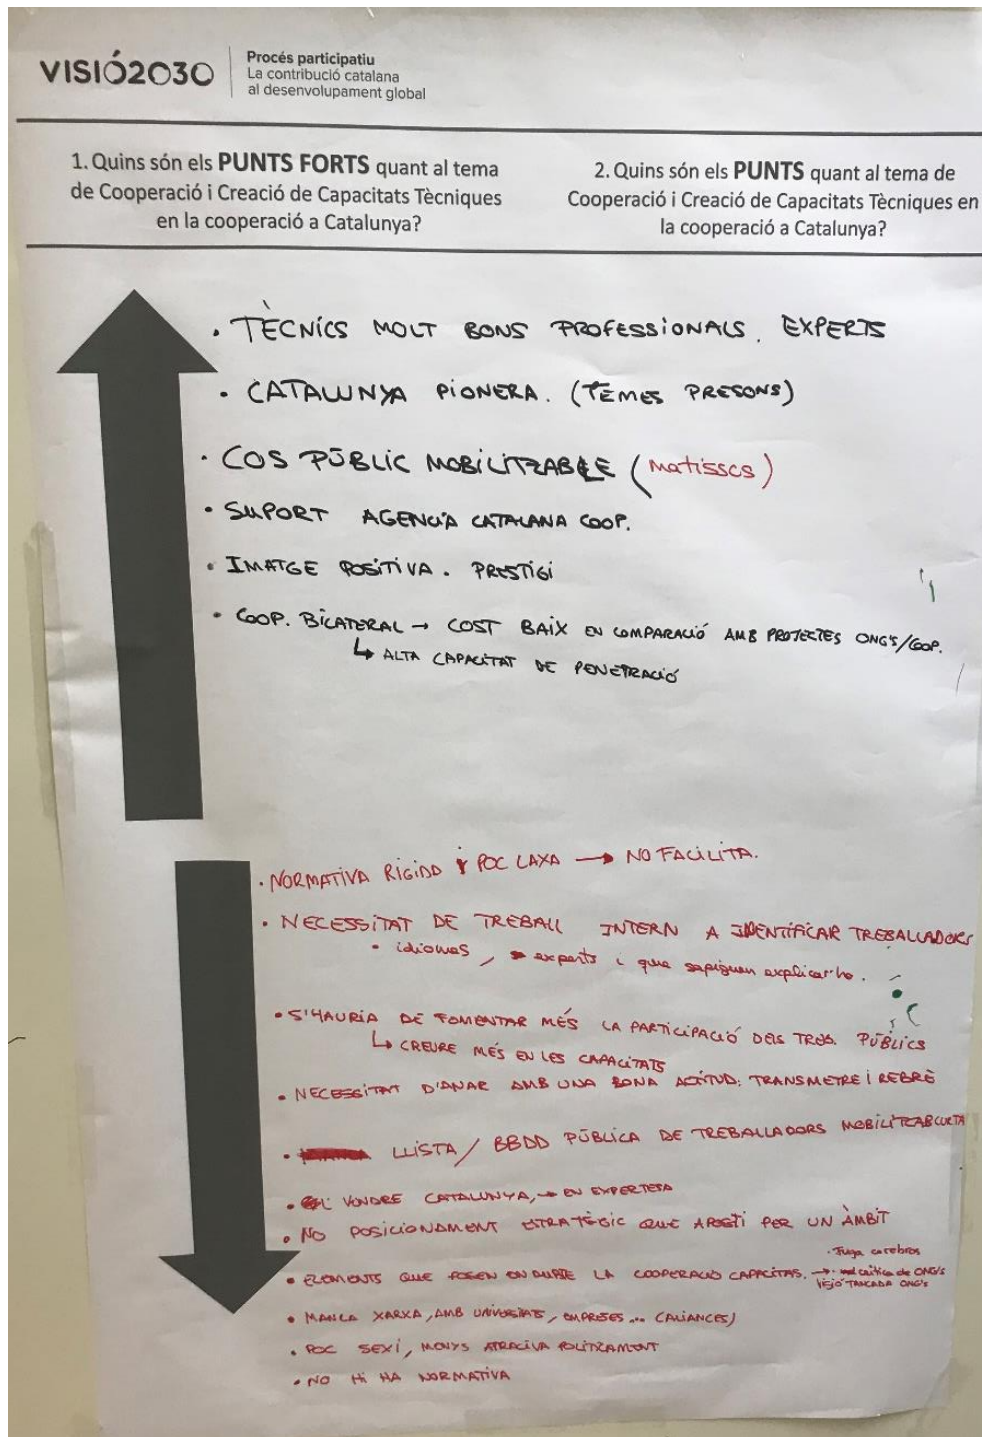 VISIÓ2030
Procés participatiu
La contribució catalana
al desenvolupament global
1. Quins són els PUNTS FORTS quant al tema
de Cooperació i Creació de Capacitats Tècniques
en la cooperació a Catalunya?
2. Quins són els PUNTS quant al tema de
Cooperació i Creació de Capacitats Tècniques en
la cooperació a Catalunya?
• TÈCNICS MOLT BONS PROFESSIONALS. EXPERTS
• CATALUNYA PIONERA. (TEMES PRESONS)
• COS PÚBLIC MOBILITZABLE (matisos)
• SUPORT AGENCIA CATALANA COOP.
• IMATGE POSITIVA. PRESTIGI
• COOP. BILATERAL → COST BAIX EN COMPARACIÓ AMB PROJECTES ONG'S/COOP.
↳ ALTA CAPACITAT DE PENETRACIÓ
• NORMATIVA RIGIDA Y POC LAXA → NO FACILITA.
• NECESSITAT DE TREBALL INTERN A IDENTIFICAR TREBALLADORS
• idiomes, experts i que sapiguen explicar-ho.
• S'HAURIA DE FOMENTAR MÉS LA PARTICIPACIÓ DELS TREB. PÚBLICS
↳ CREURE MÉS EN LES CAPACITATS
• NECESSITAT D'ANAR AMB UNA BONA ACTITUD: TRANSMETRE I REBRE
• LLISTA / BBDD PÚBLICA DE TREBALLADORS
• VENDRE CATALUNYA, → EN EXPERTESA
• NO POSICIONAMENT ESTRATÈGIC QUE APOSTI PER UN ÀMBIT
• Fuga cerebros
• ELEMENTS QUE POSEN EN DUBTE LA COOPERACIO CAPACITAS. → crítica de ONG's
TANCADA ONG's
• MANCA XARXA, AMB UNIVERSITATS, EMPRESES... (ALIANCES)
• POC SEXI, MENYS ATRACIVA POLITICAMENT
• NO HI HA NORMATIVA